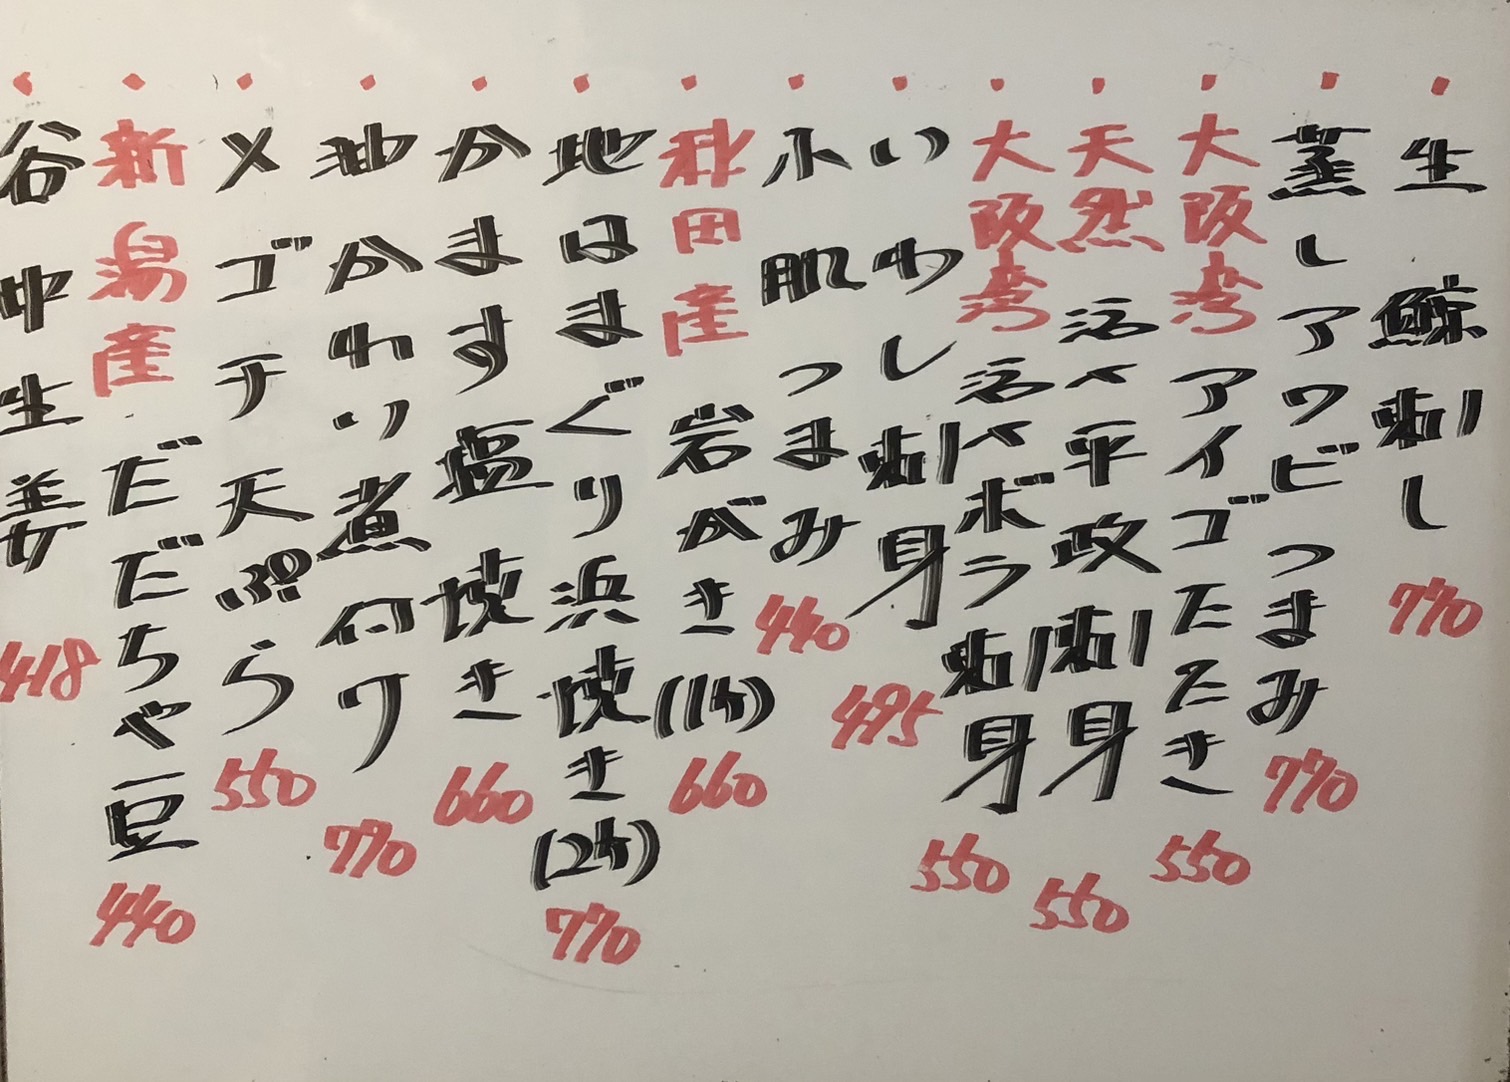 ・生鯨刺し 770
・蒸しアワビつまみ 770
・大阪湾アイゴたたき 550
・天然活〆平政刺身 550
・大阪湾活〆ボラ刺身 550
・いわし刺身 495
・小肌つまみ 440
・秋田産岩がき(1ヶ) 660
・地はまぐり浜焼き(2ヶ) 770
・かます塩焼き 660
・油かわり煮付ケ 770
・メゴチ天ぷら 550
・新潟産だだちゃ豆 440
谷中生姜 418